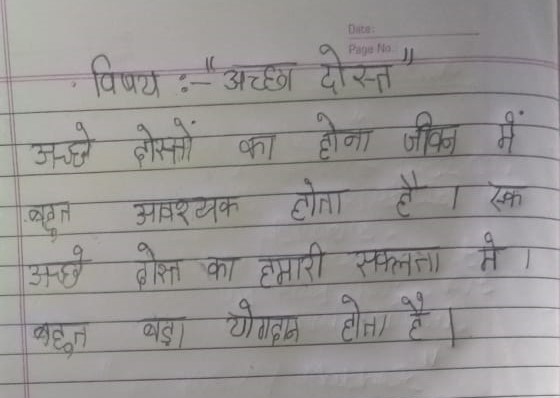 Date:
Page No.
विषय :- "अच्छा दोस्त"
अच्छे दोस्तों का होना जीवन में
बहुत आवश्यक होता है । एक
अच्छे दोस्त का हमारी सफलता मे ।
बहुत बड़ा योगदान होता है ।